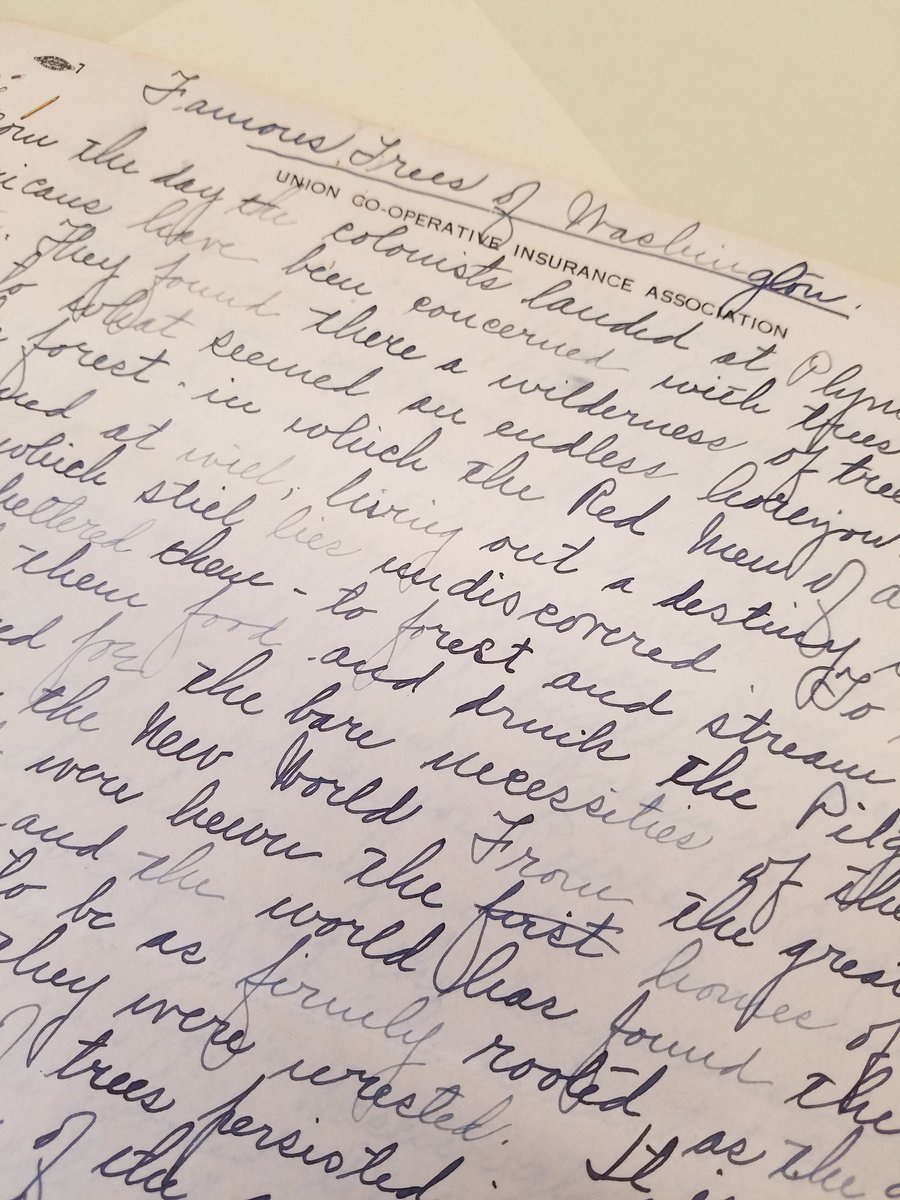 7
Famous Trees of Washington.
UNION CO-OPERATIVE INSURANCE ASSOCIATION
the day the colonists landed at Plym
icans have been concerned with trees
They found there a wilderness of tree
to what seemed an endless horizon
forest - in which the Red Men of a
at will, living out a destiny
which still lies undiscovered. To
them - to forest and stream
them food and drink the Pilg
for the bare necessities of the
the New World From the great
were hewn the first homes of
and the world has found the
to be as firmly rooted as the
they were wrested. It i
trees persisted
of the